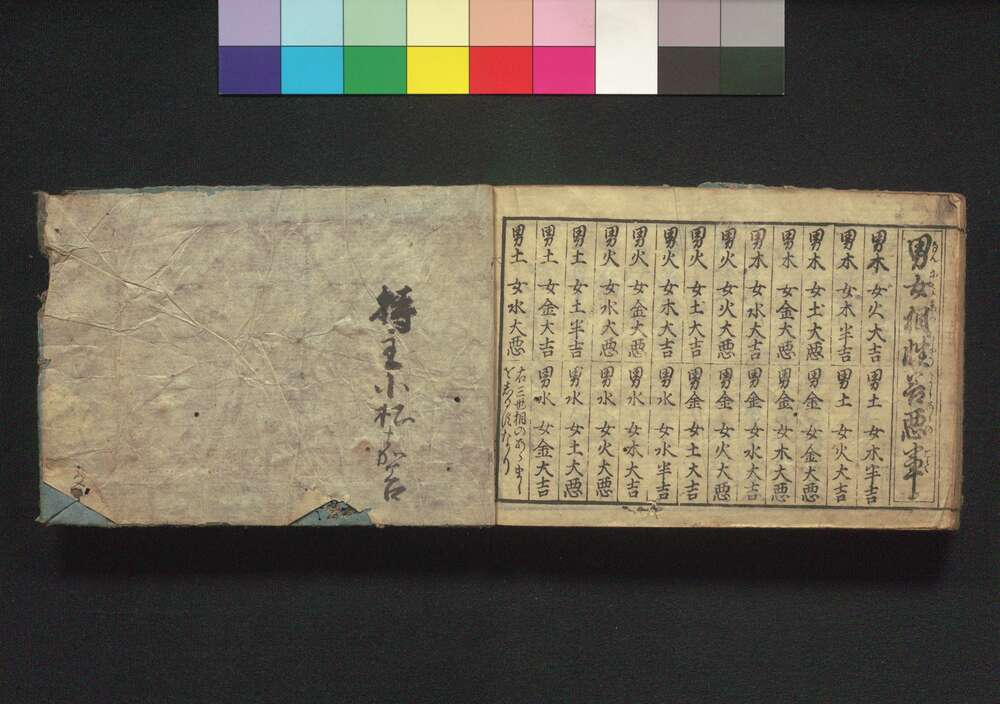 男女相性善悪事
男木 女火大吉 男土 女木半吉
男木 女木半吉 男土 女火大吉
男木 女土大悪 男金 女金大悪
男木 女金大悪 男金 女木大悪
男木 女水大吉 男金 女水大吉
男火 女火大悪 男金 女火大悪
男火 女土大吉 男金 女土大吉
男火 女木大吉 男水 女水半吉
男火 女金大悪 男水 女木大吉
男火 女水大悪 男水 女火大悪
男土 女土半吉 男水 女土大悪
男土 女金大吉 男水 女金大吉
男土 女水大悪
右三世相のあらまし
をしるすなり
持主小松